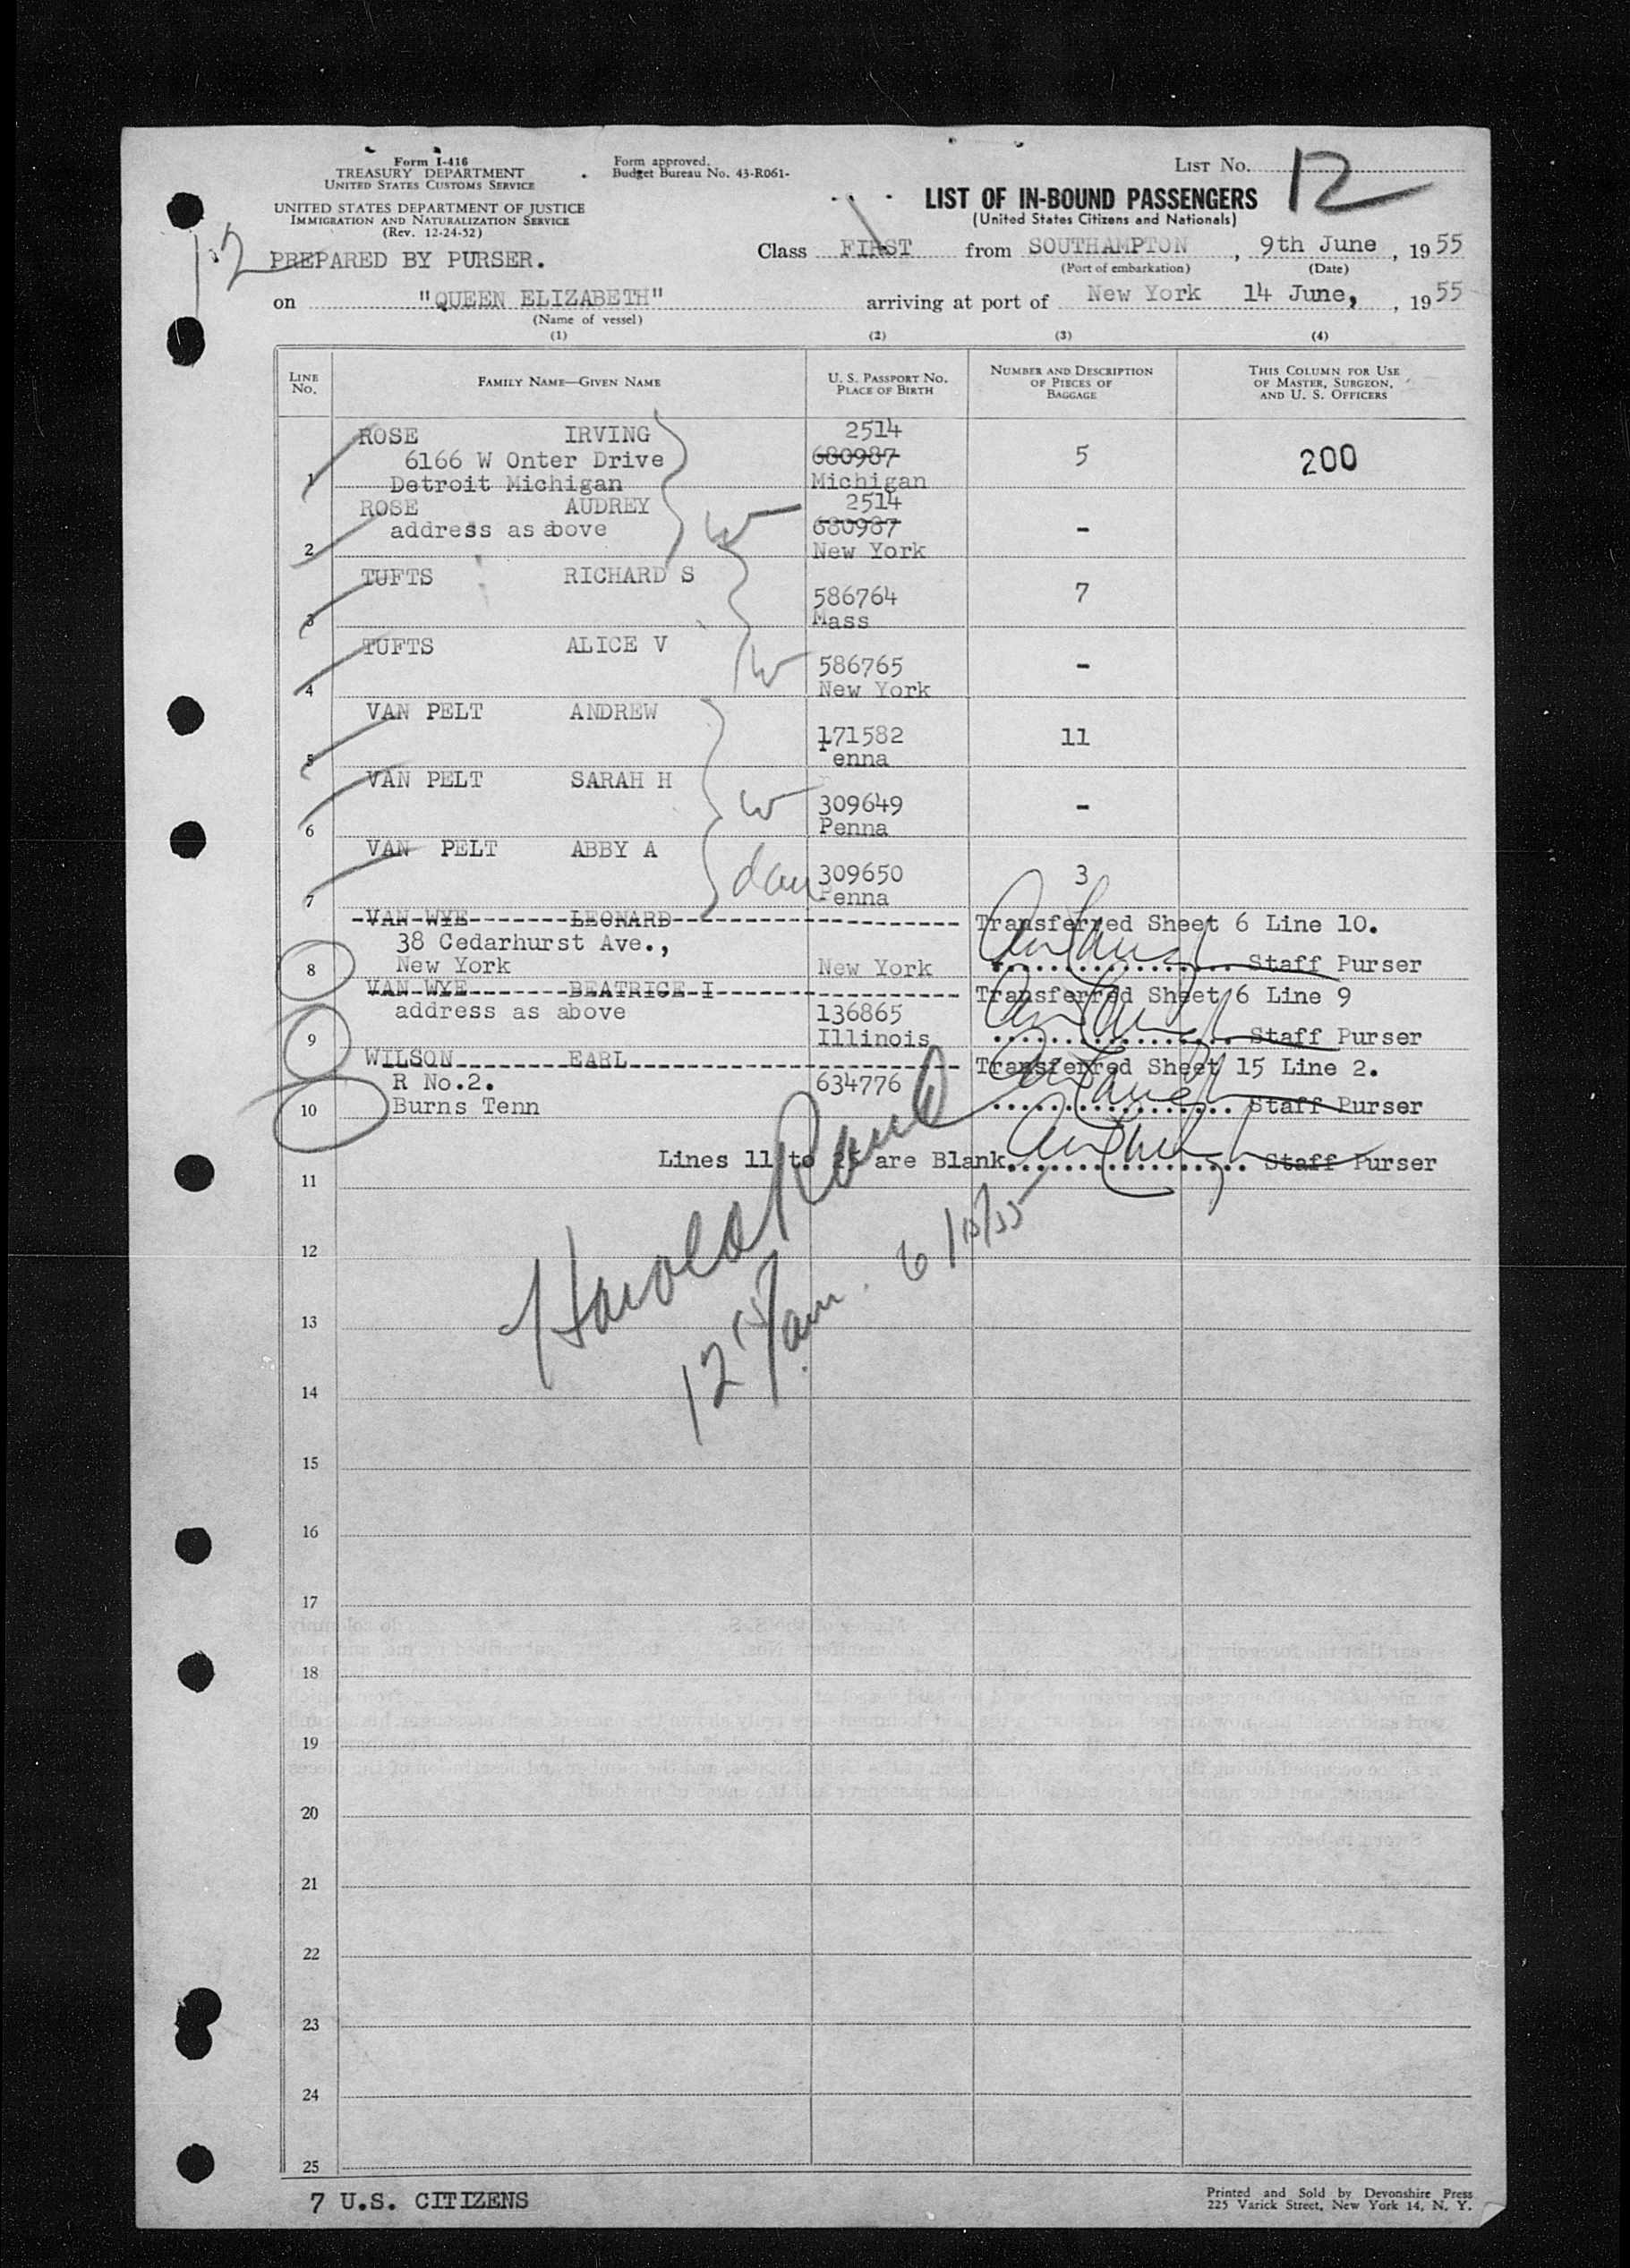 Form I-416
TREASURY DEPARTMENT
UNITED STATES CUSTOMS SERVICE
UNITED STATES DEPARTMENT OF JUSTICE
IMMIGRATION AND NATURALIZATION SERVICE
(Rev. 12-24-52)
Form approved.
Budget Bureau No. 43-R061-
LIST No. 12
LIST OF IN-BOUND PASSENGERS
(United States Citizens and Nationals)
PREPARED BY PURSER.
Class FIRST from SOUTHAMPTON, 9th June, 1955
(Port of embarkation) (Date)
on "QUEEN ELIZABETH" arriving at port of New York 14 June, , 1955
(Name of vessel)
(1) (2) (3) (4)
LINE No.
FAMILY NAME—GIVEN NAME
U. S. PASSPORT NO.
PLACE OF BIRTH
NUMBER AND DESCRIPTION
OF PIECES OF
BAGGAGE
THIS COLUMN FOR USE
OF MASTER, SURGEON,
AND U. S. OFFICERS
ROSE IRVING 2514
6166 W Onter Drive 680987 5 200
1 Detroit Michigan Michigan
ROSE AUDREY 2514
address as above 680987 -
2 New York
W
TUFTS RICHARD S
586764 7
3 Mass
TUFTS ALICE V
W 586765 -
4 New York
VAN PELT ANDREW
171582 11
5 Penna
VAN PELT SARAH H
W 309649 -
6 Penna
VAN PELT ABBY A
dau 309650 3
7 Penna
VAN WYE LEONARD Transferred Sheet 6 Line 10.
38 Cedarhurst Ave.,
8 New York New York Staff Purser
VAN WYE BEATRICE I Transferred Sheet 6 Line 9
address as above 136865
9 Illinois Staff Purser
WILSON EARL Transferred Sheet 15 Line 2.
R No.2. 634776
10 Burns Tenn Staff Purser
Lines 11 to are Blank Staff Purser
11
12
Harold
am. 6/13/55
13
14
15
16
17
18
19
20
21
22
23
24
25
7 U.S. CITIZENS
Printed and Sold by Devonshire Press
225 Varick Street, New York 14, N. Y.